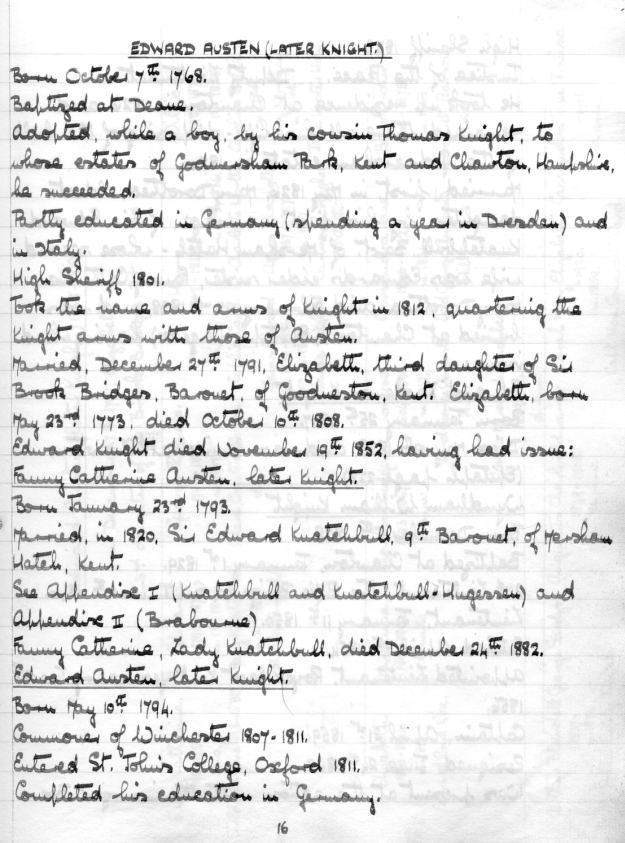 EDWARD AUSTEN (LATER KNIGHT.)
Born October 7th 1768.
Baptized at Deane.
Adopted, while a boy, by his cousin Thomas Knight, to
whose estates of Godmersham Park, Kent and Chawton, Hampshire,
he succeeded.
Partly educated in Germany (spending a year in Dresden) and
in Italy.
High Sheriff 1801.
Took the name and arms of Knight in 1812, quartering the
Knight arms with those of Austen.
Married, December 27th 1791, Elizabeth, third daughter of Sir
Brook Bridges, Baronet, of Goodneston, Kent. Elizabeth, born
May 23rd 1773, died October 10th 1808.
Edward Knight died November 19th 1852, having had issue:
Fanny Catherine Austen, later Knight.
Born January 23rd 1793.
Married, in 1820, Sir Edward Knatchbull, 9th Baronet, of Mersham
Hatch, Kent.
See Appendix I (Knatchbull and Knatchbull-Hugessen) and
Appendix II (Brabourne)
Fanny Catherine, Lady Knatchbull, died December 24th 1882.
Edward Austen, later Knight.
Born May 10th 1794.
Commoner of Winchester 1807-1811.
Entered St. John's College, Oxford 1811.
Completed his education in Germany.
16